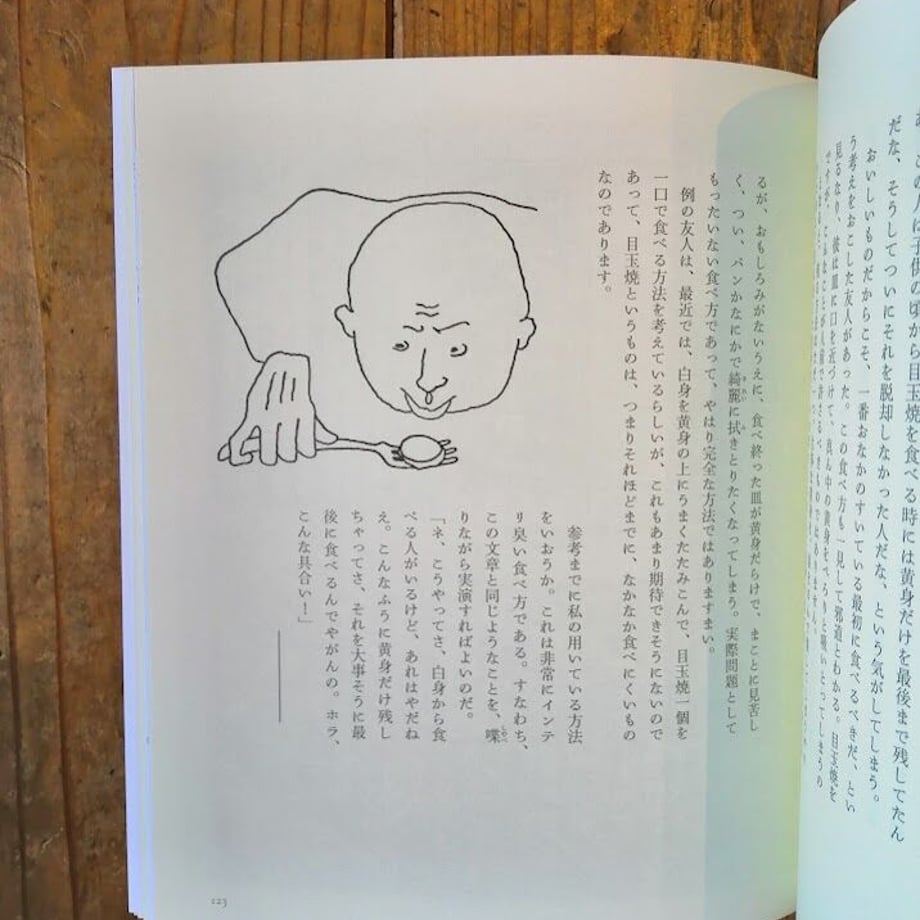 この人は子供の頃から目玉焼を食べる時には黄身だけを最後まで残してたん
だな、そうしてついにそれを脱却しなかった人だな、という気がしてしまう。
おいしいものだからこそ、一番おなかのすいている最初に食べるべきだ、とい
う考えをおこした友人があった。この食べ方も一見して邪道とわかる。目玉焼を
見るなり、彼は皿に口を近づけて、真ん中の黄身をぺろりと吸いとってしまうの
ことが人前で許さるべきものではありません。
るが、おもしろみがないうえに、食べ終った皿が黄身だらけで、まことに見苦し
く、つい、パンかなにかで綺麗に拭きとりたくなってしまう。実際問題として
もったいない食べ方であって、やはり完全な方法ではありますまい。
例の友人は、最近では、白身を黄身の上にうまくたたみこんで、目玉焼一個を
一口で食べる方法を考えているらしいが、これもあまり期待できそうにないので
あって、目玉焼というものは、つまりそれほどまでに、なかなか食べにくいもの
なのであります。
参考までに私の用いている方法
をいおうか。これは非常にインテ
リ臭い食べ方である。すなわち、
この文章と同じようなことを、喋
りながら実演すればよいのだ。
「ネ、こうやってさ、白身から食
べる人がいるけど、あれはやだね
え。こんなふうに黄身だけ残し
ちゃってさ、それを大事そうに最
後に食べるんでやがんの。ホラ、
こんな具合い！」
123